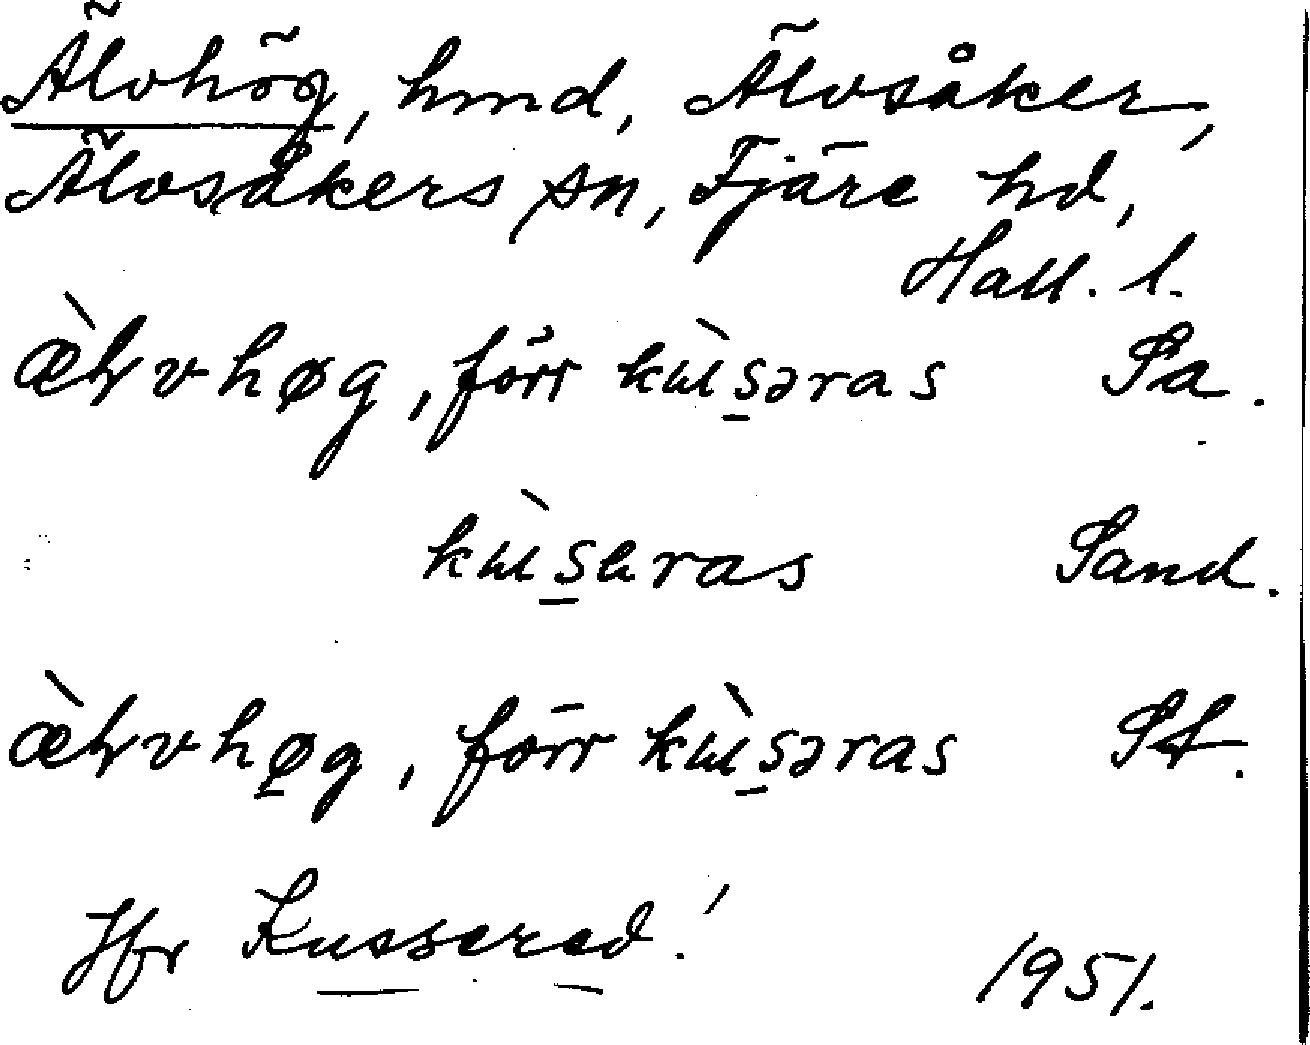 Älvhög, hmd, Älvsåker,
Älvsåkers sn, Fjäre hd,
Hall. l.
æ̀lvhøg, förr kùsəras Sa.
kùsaras Sand.
æ̀lvhøg, förr kùsəras St.
Jfr Kussered!
1951.